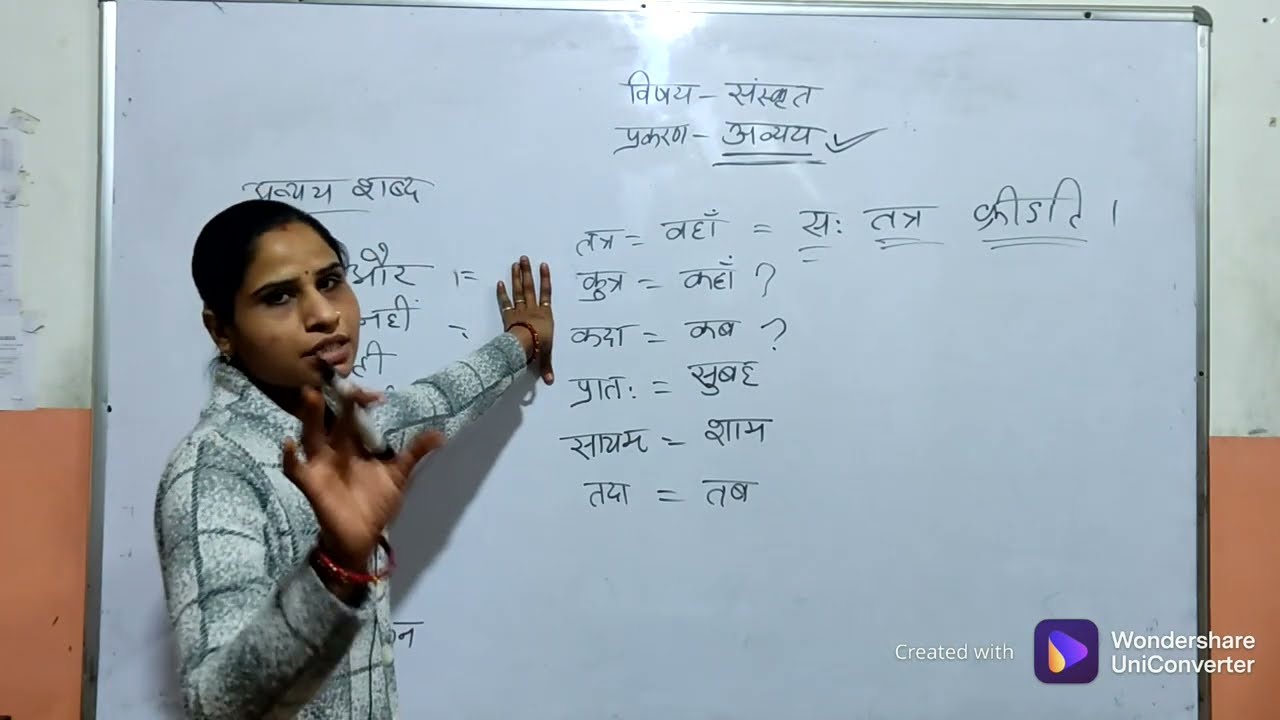 विषय - संस्कृत
प्रकरण - अव्यय
अव्यय शब्द
और । =
नहीं
तत्र = वहाँ = सः तत्र क्रीडति ।
कुत्र = कहाँ ?
कदा = कब ?
प्रातः = सुबह
सायम = शाम
तदा = तब
Created with Wondershare UniConverter